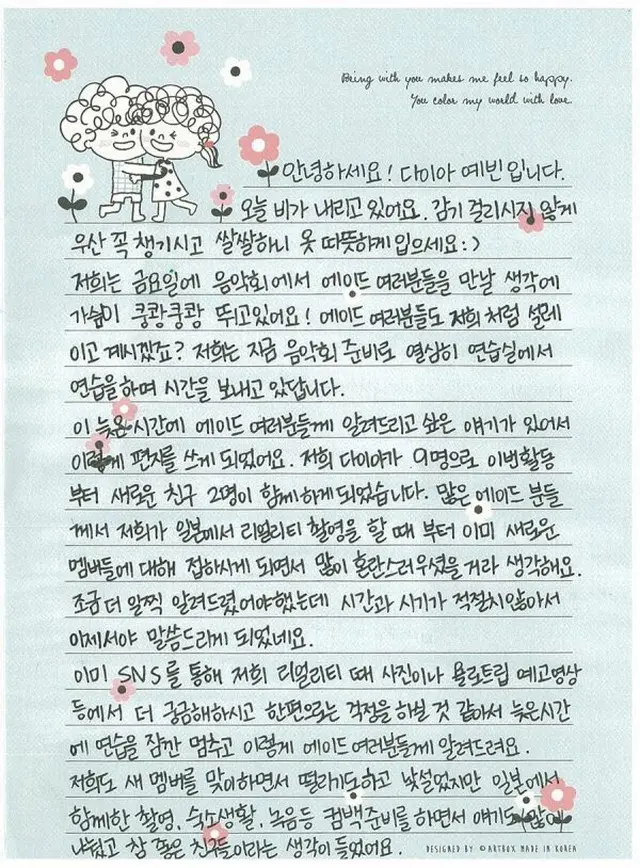 Being with you makes me feel so happy.
You color my world with love.
안녕하세요! 다이아 예빈입니다.
오늘 비가 내리고 있어요. 감기 걸리시지 않게
우산 꼭 챙기시고 쌀쌀하니 옷 따뜻하게 입으세요:)
저희는 금요일에 음악회에서 에이드 여러분들을 만날 생각에
가슴이 쿵쾅쿵쾅 뛰고있어요! 에이드 여러분들도 저희처럼 설레
이고 계시겠죠? 저희는 지금 음악회 준비로 열심히 연습실에서
연습을하며 시간을 보내고 있답니다.
이 늦은 시간에 에이드 여러분들께 알려드리고 싶은 얘기가 있어서
이렇게 편지를 쓰게 되었어요. 저희 다이아가 9명으로 이번활동
부터 새로운 친구 2명이 함께하게되었습니다. 많은 에이드 분들
께서 저희가 일본에서 리얼리티 촬영을 할 때 부터 이미 새로운
멤버들에 대해 접하시게 되면서 많이 혼란스러우셨을거라 생각해요.
조금 더 일찍 알려드렸어야했는데 시간과 시기가 적절치않아서
이제서야 말씀드리게 되었네요.
이미 SNS를 통해 저희 리얼리티 때 사진이나 욜로트립 예고영상
등에서 더 궁금해하시고 한편으로는 걱정을 하실 것 같아서 늦은시간
에 연습을 잠깐 멈추고 이렇게 에이드 여러분들께 알려드려요.
저희도 새 멤버를 맞이하면서 떨리기도하고 낯설었지만 일본에서
함께한 촬영, 숙소생활, 녹음등 컴백준비를 하면서 얘기도 많이
나눴고 참 좋은 친구들이라는 생각이 들었어요.
DESIGNED BY ©ARTBOX MADE IN KOREA